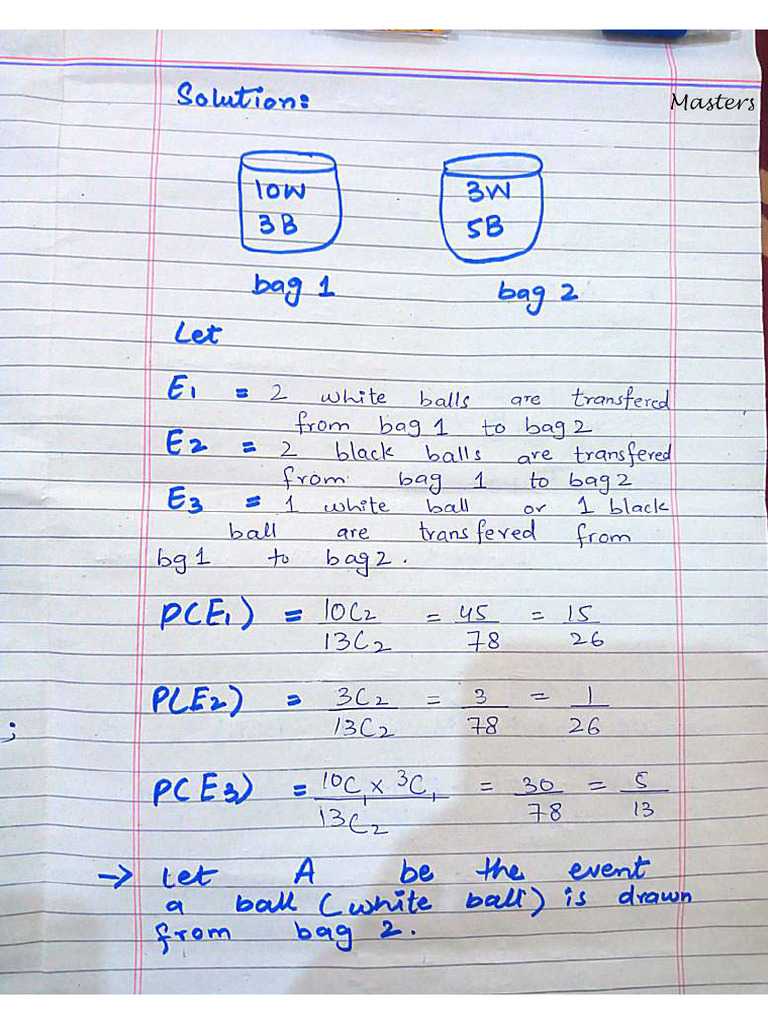 Solution:
Masters
10W
3B
3W
5B
bag 1
bag 2
Let
E1 = 2 white balls are transfered
from bag 1 to bag 2
E2 = 2 black balls are transfered
from bag 1 to bag 2
E3 = 1 white ball or 1 black
ball are transfered from
bg 1 to bag 2.
P(E1) = 10C2/13C2 = 45/78 = 15/26
P(E2) = 3C2/13C2 = 3/78 = 1/26
;
P(E3) = 10C1 x 3C1/13C2 = 30/78 = 5/13
→ Let A be the event
a ball (white ball) is drawn
from bag 2.